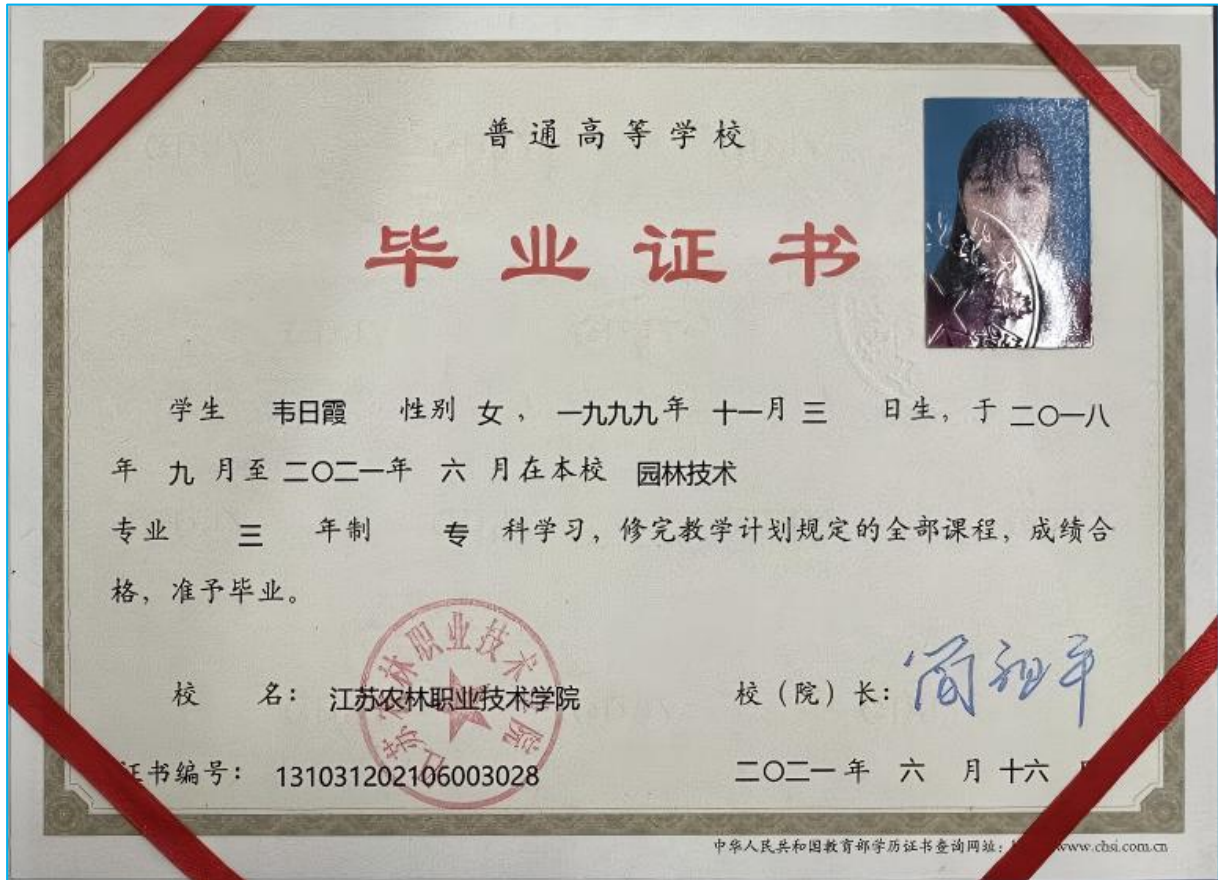 普通高等学校
毕业证书
学生 韦日霞 性别 女 ， 一九九九年 十一月 三 日生，于 二〇一八
年 九 月至 二〇二一年 六 月在本校 园林技术
专业 三 年制 专 科学习，修完教学计划规定的全部课程，成绩合
格，准予毕业。
江苏农林职业技术学院
校 名： 江苏农林职业技术学院 校（院）长：简祖平
书编号： 131031202106003028 二〇二一 年 六 月 十六
中华人民共和国教育部学历证书查询网址： www.chsi.com.cn